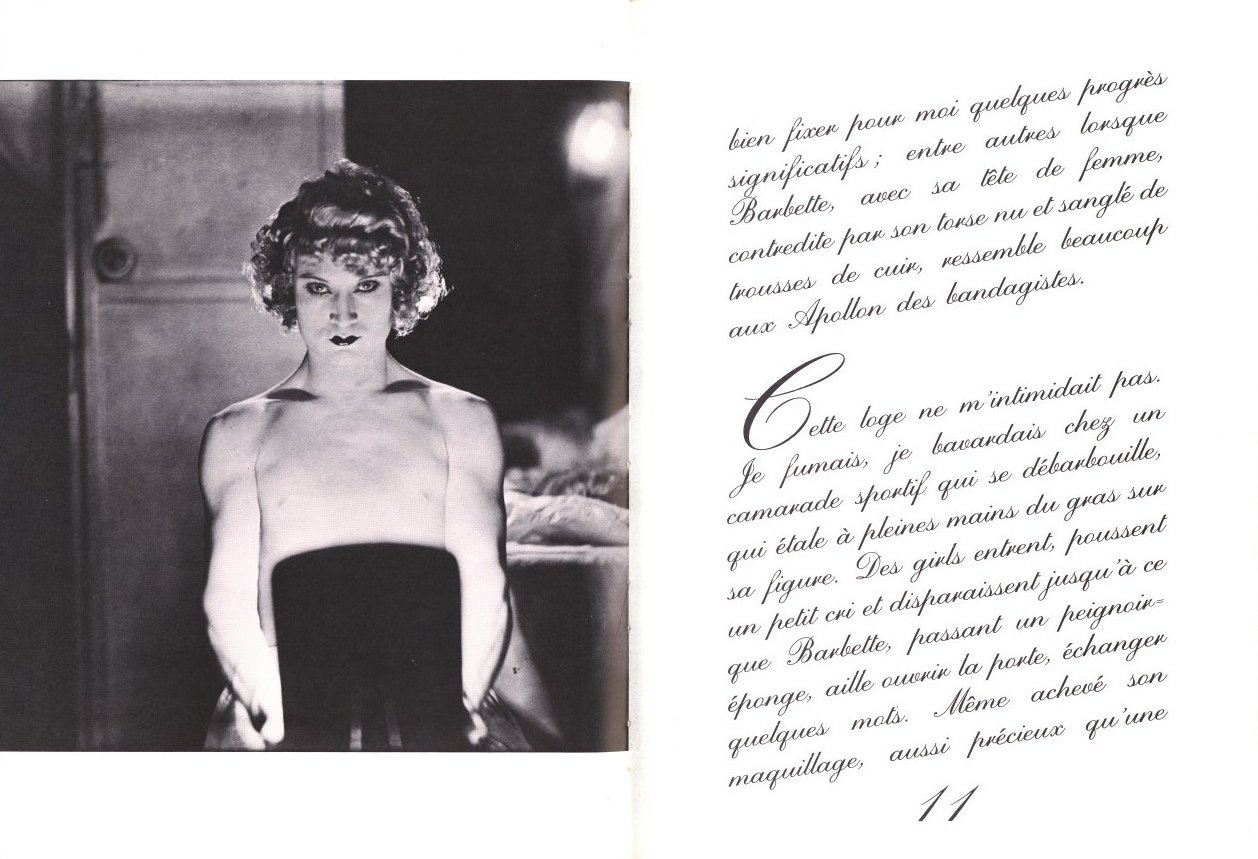 bien fixer pour moi quelques progrès
significatifs ; entre autres lorsque
Barbette, avec sa tête de femme,
contredite par son torse nu et sanglé de
trousses de cuir, ressemble beaucoup
aux Apollon des bandagistes.
Cette loge ne m'intimidait pas.
Je fumais, je bavardais chez un
camarade sportif qui se débarbouille,
qui étale à pleines mains du gras sur
sa figure. Des girls entrent, poussent
un petit cri et disparaissent jusqu'à ce
que Barbette, passant un peignoir=
éponge, aille ouvrir la porte, échanger
quelques mots. Même achevé son
maquillage, aussi précieux qu'une
11